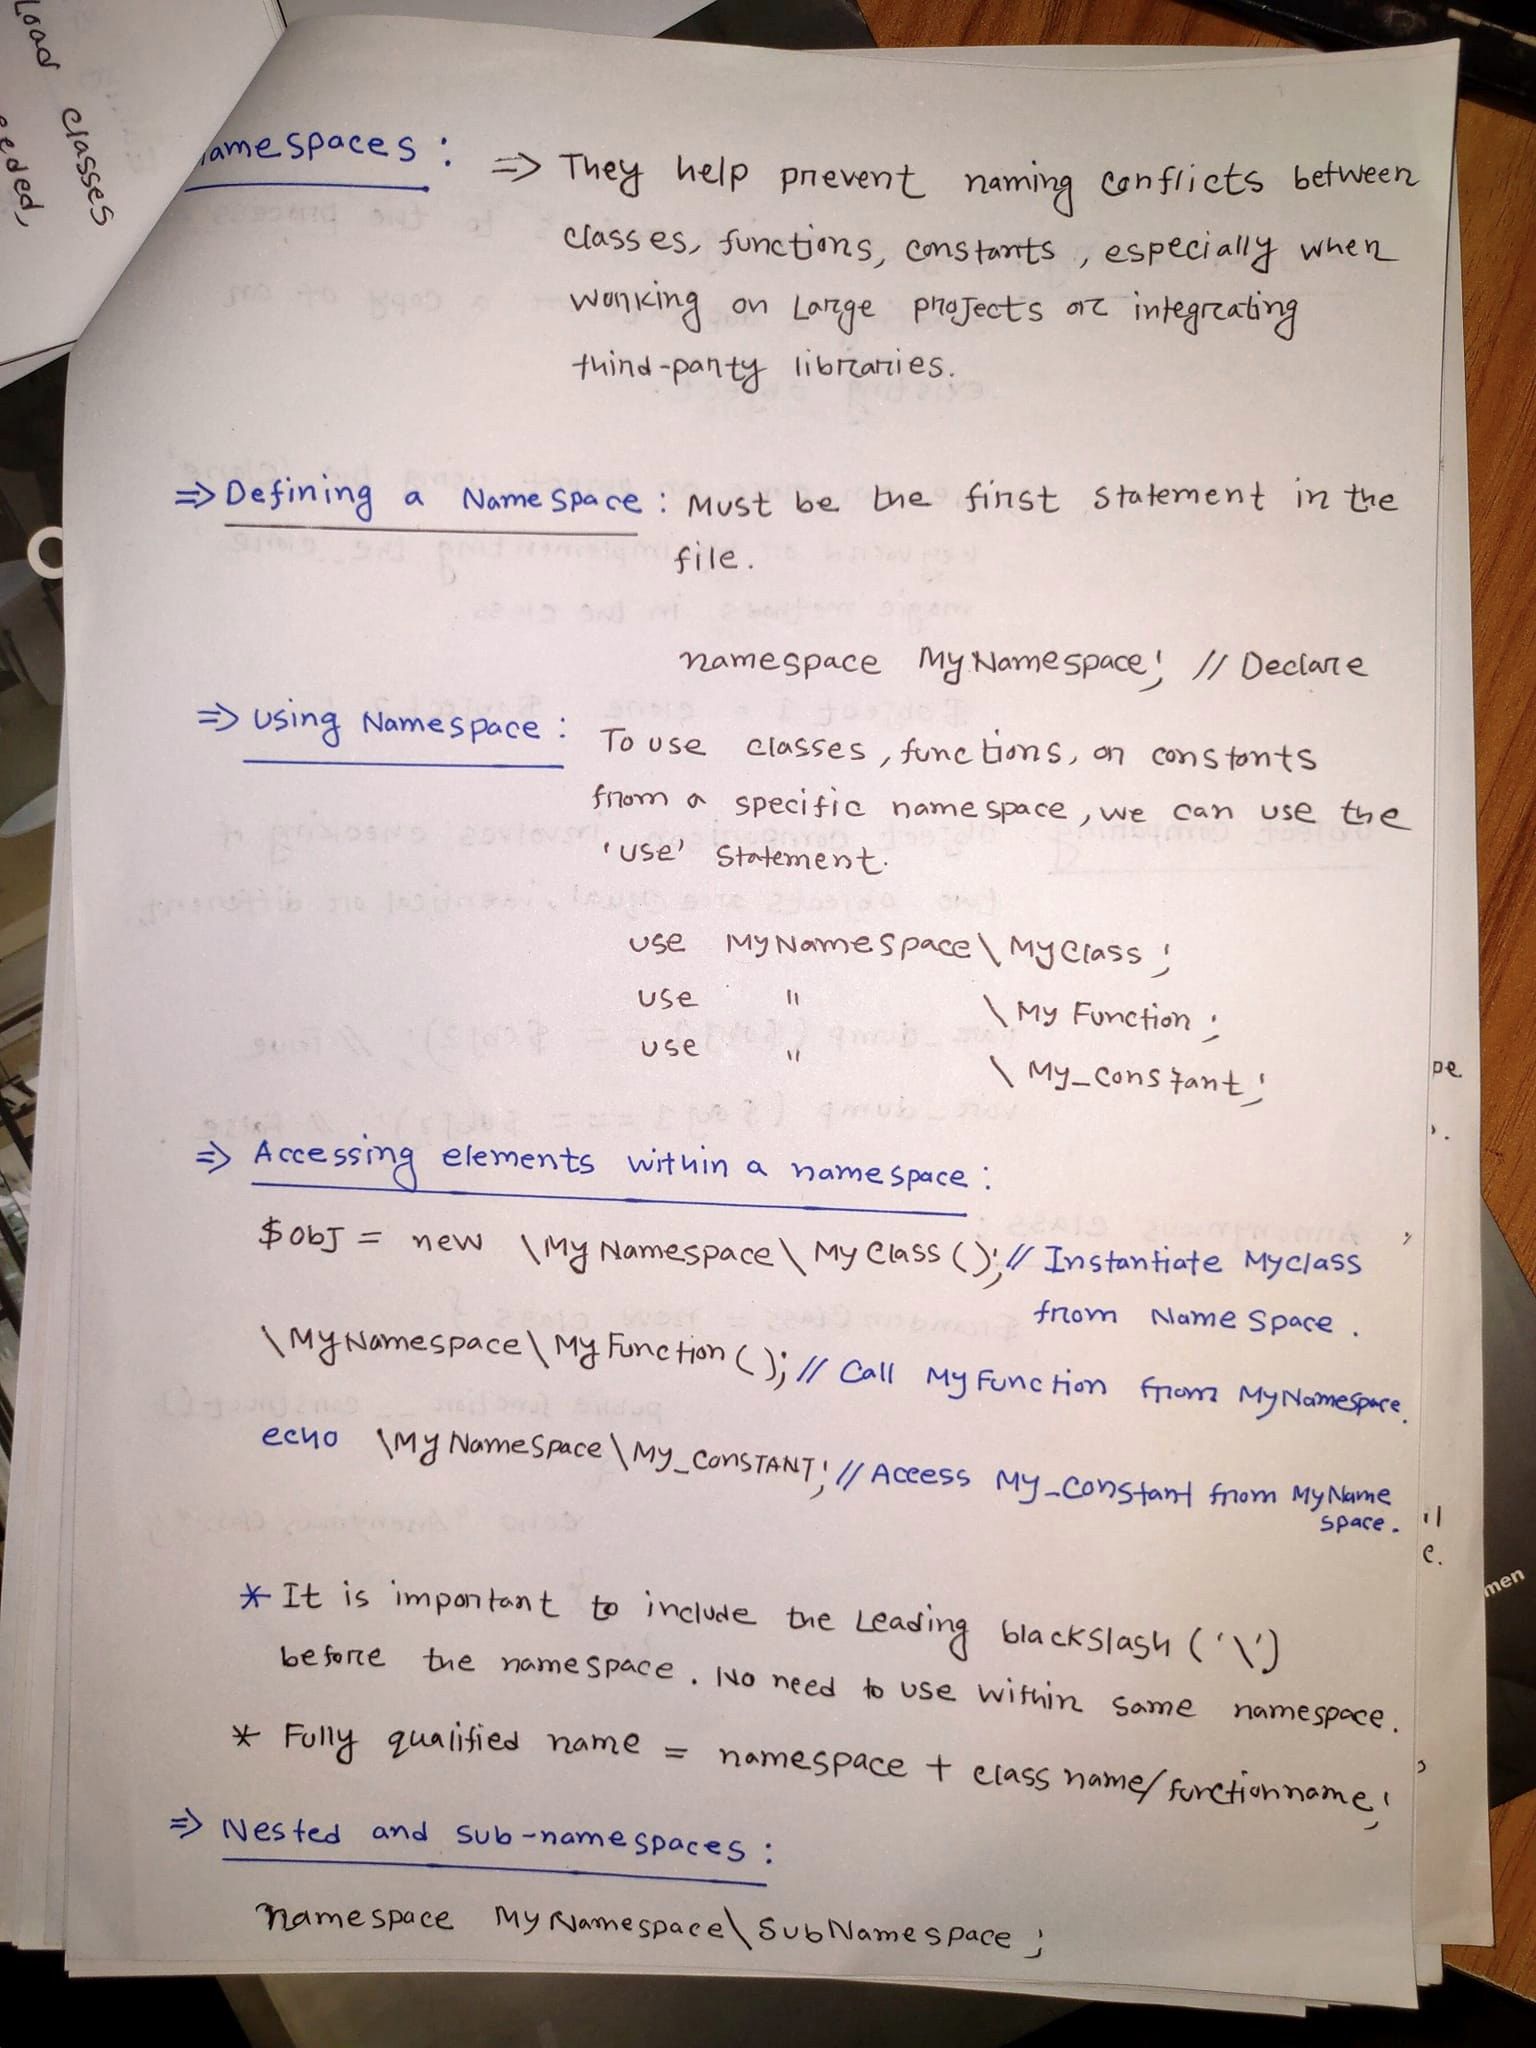 Load classes
eeded,
amespaces : => They help prevent naming conflicts between
classes, functions, constants, especially when
working on Large projects or integrating
third-party libraries.
=> Defining a NameSpace : Must be the first statement in the
file.
namespace MyNamespace; // Declare
=> Using Namespace : To use classes, functions, or constants
from a specific namespace, we can use the
'use' statement.
use MyNamespace\MyClass;
use " \My Function;
use " \My_constant;
=> Accessing elements within a namespace :
$obj = new \MyNamespace\MyClass(); // Instantiate Myclass
from NameSpace.
\MyNamespace\MyFunction(); // Call MyFunction from MyNamespace.
echo \MyNameSpace\My_CONSTANT; // Access My_Constant from MyName
space.
* It is important to include the Leading blackslash ('\')
before the namespace. No need to use within same namespace.
* Fully qualified name = namespace + class name/functionname;
=> Nested and sub-namespaces :
namespace MyNamespace\SubNamespace;
pe
il
e.
men